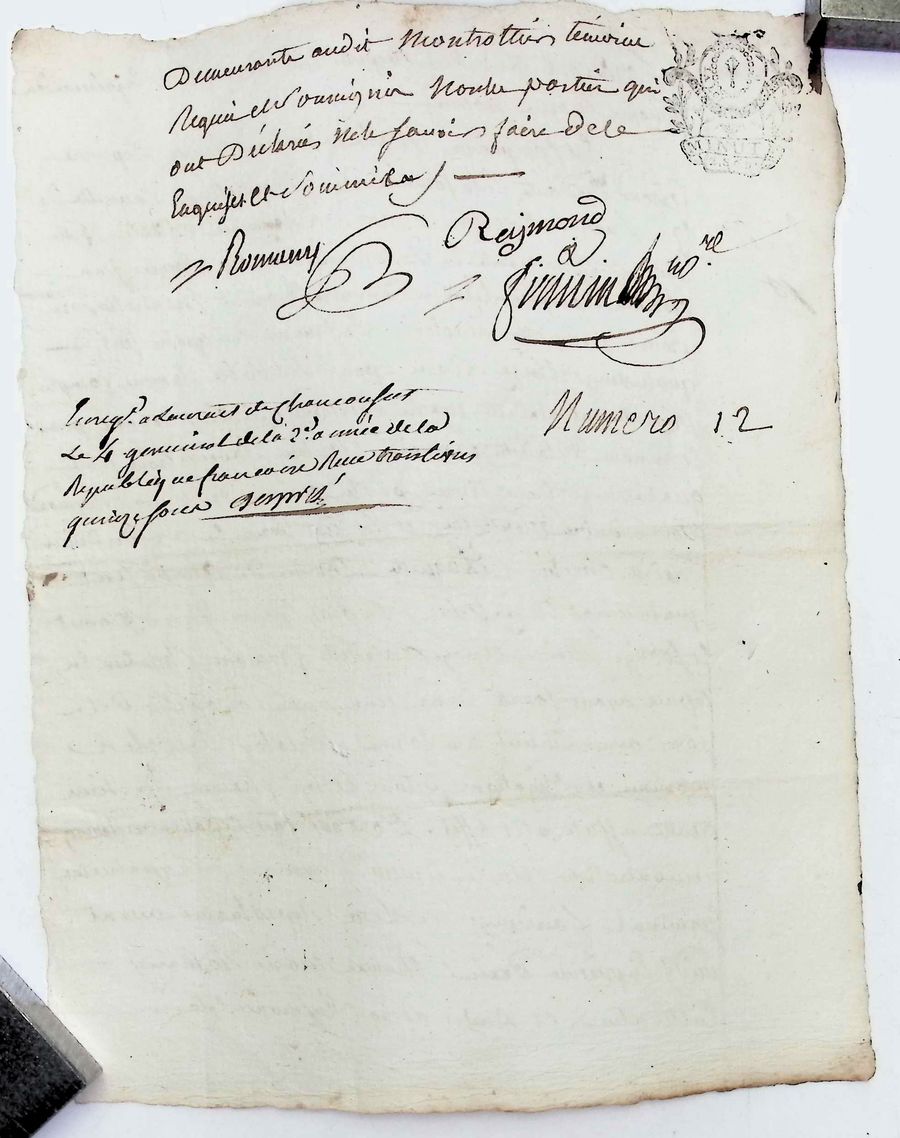 Demeurants audit Montrottier témoins
Requis et Soumignés Non les parties qui
ont Déclarés ne le savoir faire de ce
Enquises et Sommées
Romeny Reymond
Firmin Nore
Numero 12
Enregt. a Laurent de Chamousset
Le 4 germinal de la 2e. année de la
Republique francoise Reçu trois livres
quinze sous
MINUT